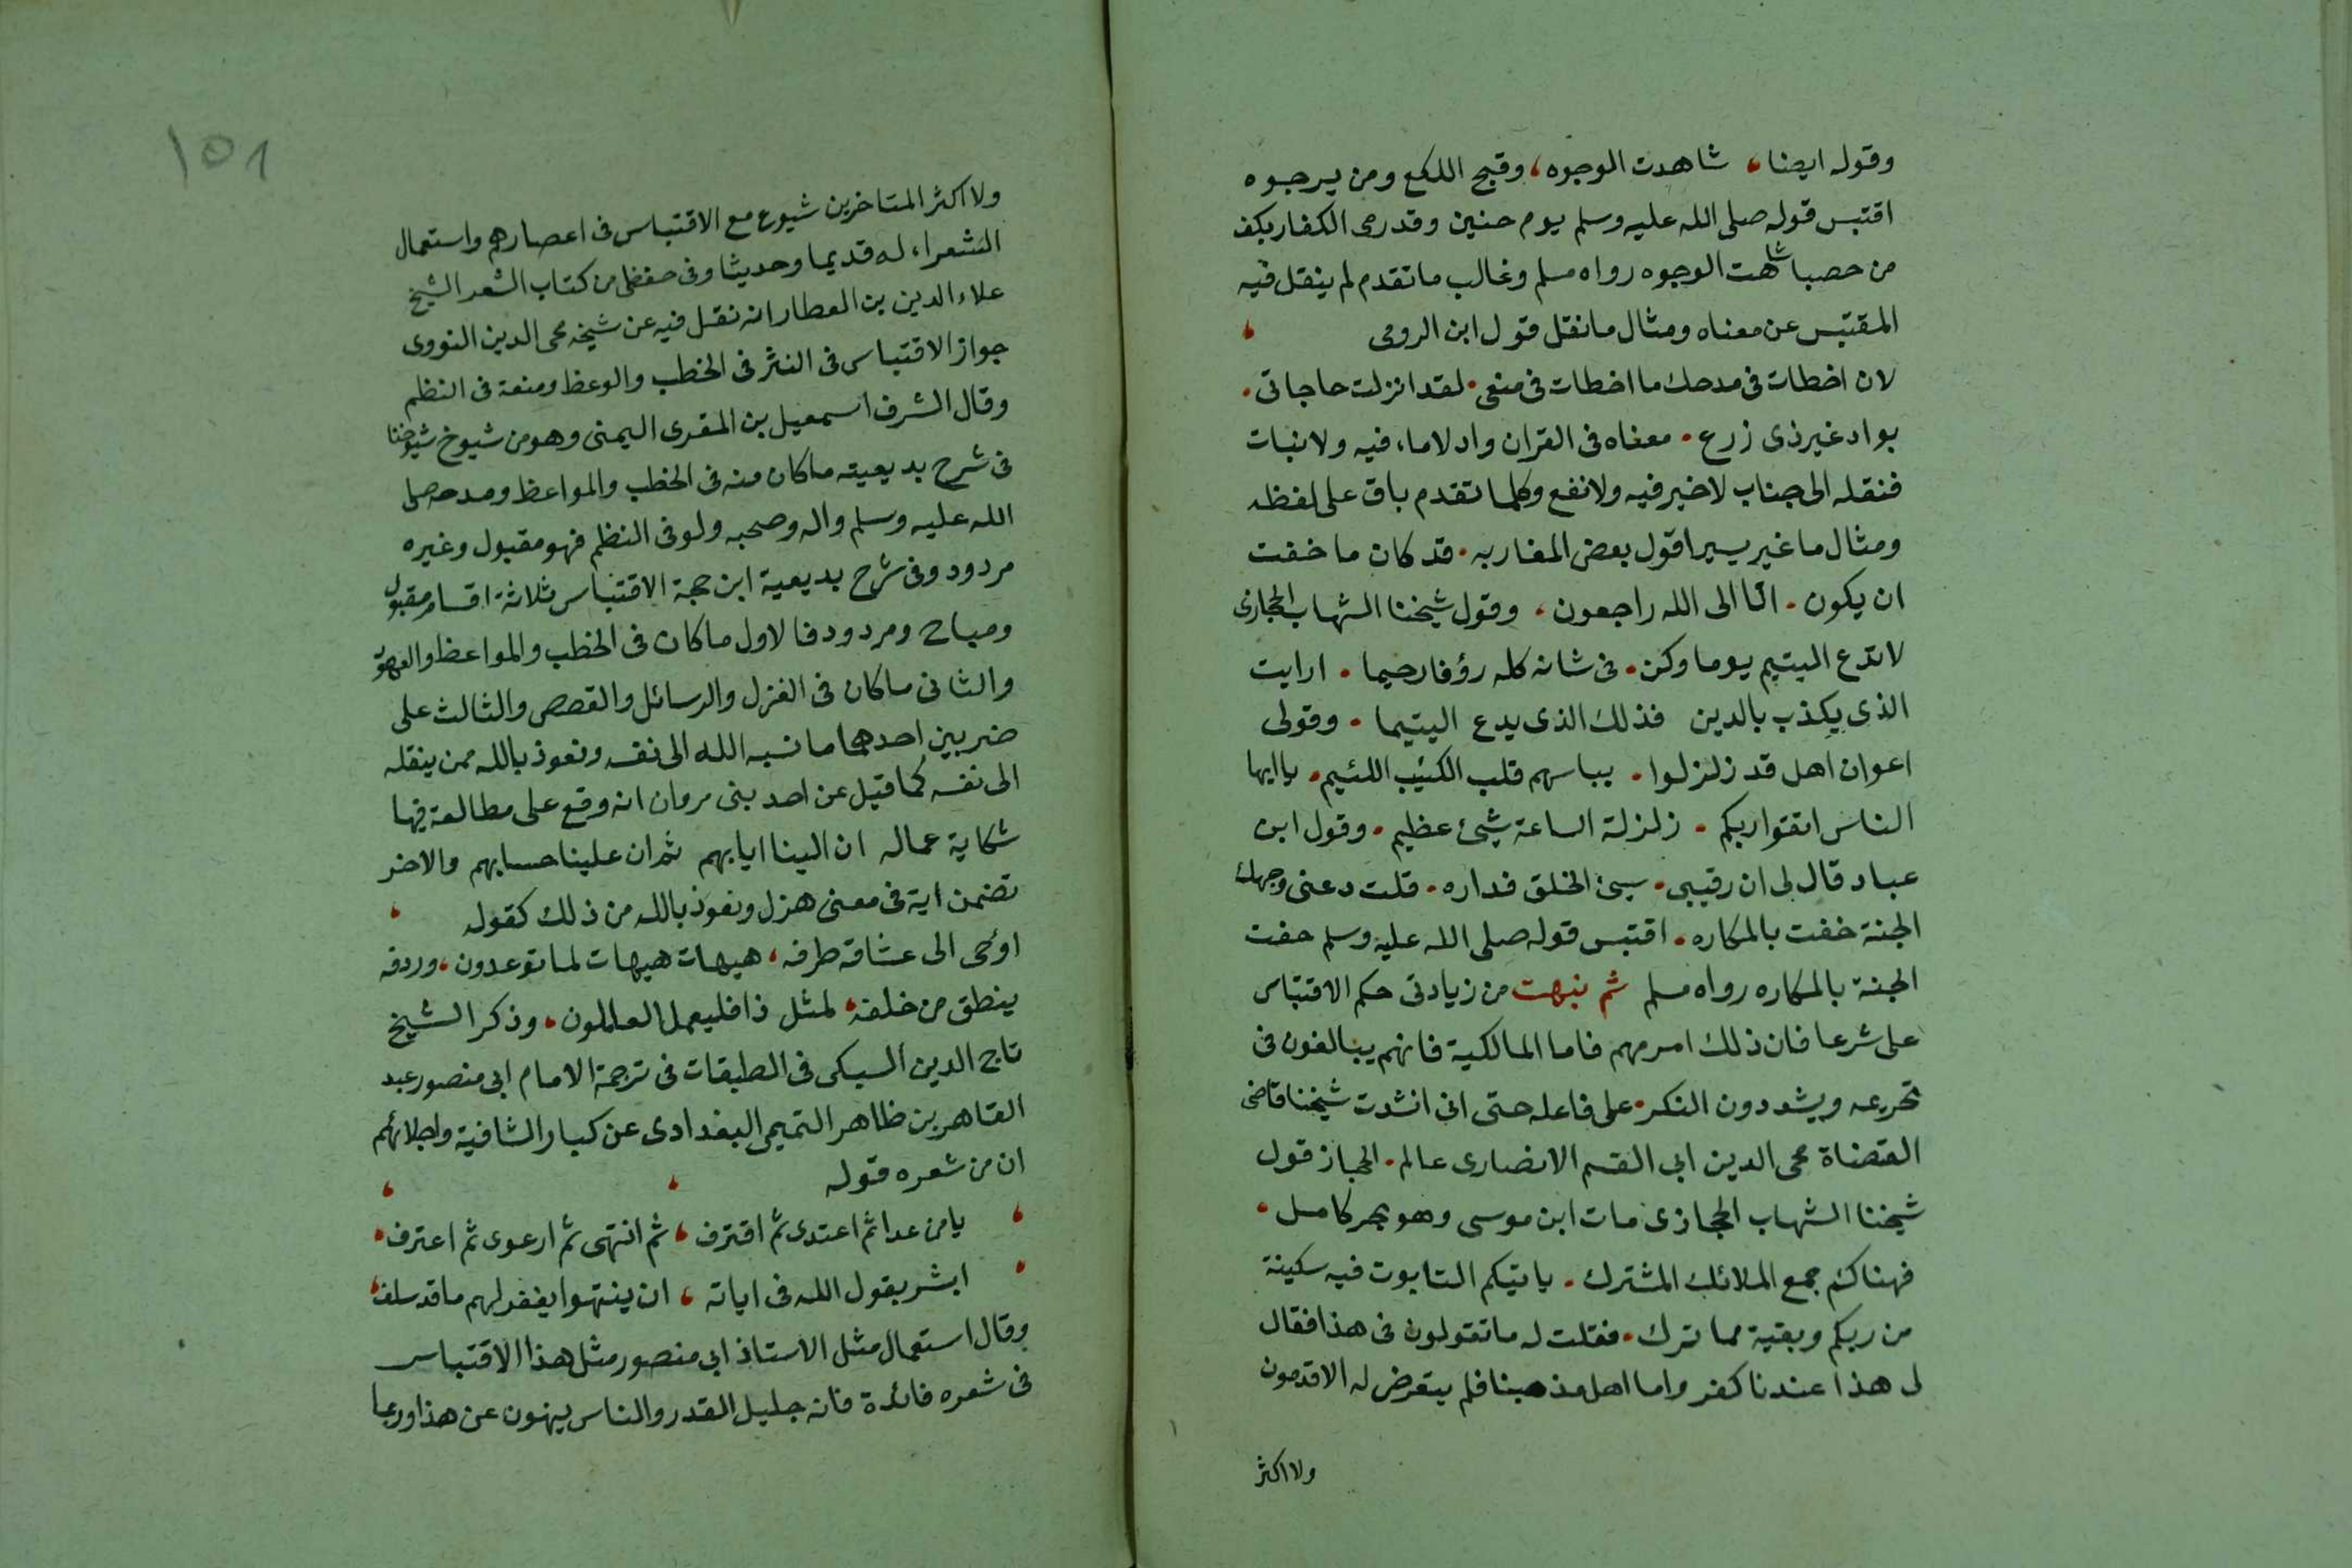 وقوله ايضا، شاهدت الوجوه، وقبح اللكع ومن يرجوه
اقتبس قوله صلى الله عليه وسلم يوم حنين وقد رمى الكفار بكف
من حصبا شاهت الوجوه رواه مسلم وغالب ما تقدم لم ينقل فيه
المقتبس عن معناه ومثال ما نقل قول ابن الرومى
لان اخطات فى مدحك ما اخطات فى منعى . لقد انزلت حاجاتى .
بواد غير ذى زرع . معناه فى القران واد لا ماء فيه ولا نبات
فنقله الى جناب لا خير فيه ولا نفع وكلما تقدم باق على لفظه
ومثال ما غير يسيرا قول بعض المغاربه . قد كان ما خفت
ان يكون . انا الى الله راجعون . وقول شيخنا الشهاب الحجازى
لا تدع اليتيم يوما وكن . فى شانه كله رؤفا رحيما . ارايت
الذى يكذب بالدين فذلك الذى يدع اليتيما . وقولى
اعوان اهل قد زلزلوا . بباسهم قلب الكئيب اللئيم . يا ايها
الناس اتقوا ربكم . زلزلة الساعة شيئ عظيم . وقول ابن
عباد قال لى ان رقيبى . سيئ الخلق فداره . قلت دعنى وجهك
الجنة خفت بالمكاره . اقتبس قوله صلى الله عليه وسلم حفت
الجنة بالمكاره رواه مسلم ثم نبهت من زيادتى حكم الاقتباس
على شرعا فان ذلك امر مهم فاما المالكية فانهم يبالغون فى
تحريمه ويشددون النكر . على فاعله حتى انى انشدت شيخنا قاضى
القضاة محى الدين ابى القسم الانصارى عالم . الحجاز قول
شيخنا الشهاب الحجازى مات ابن موسى وهو بحر كامل .
فهناكم جمع الملائك المشترك . ياتيكم التابوت فيه سكينة
من ربكم وبقية مما ترك . فقلت له ما تقولون فى هذا فقال
لى هذا عندنا كفر واما اهل مذهبنا فلم يتعرض له الاقدمون
ولا اكثر
١٥١
ولا اكثر المتاخرين شيوع مع الاقتباس فى اعصارهم واستعمال
الشعراء له قديما وحديثا وفى حفظى من كتاب الشعر الشيخ
علاء الدين بن العطار انه نقل فيه عن شيخه محى الدين النووى
جواز الاقتباس فى النثر فى الخطب والوعظ ومنعه فى النظم
وقال الشرف اسمعيل بن المقرى اليمنى وهو من شيوخ شيوخنا
فى شرح بديعيته ما كان منه فى الخطب والمواعظ ومدحه صلى
الله عليه وسلم واله وصحبه ولو فى النظم فهو مقبول وغيره
مردود وفى شرح بديعية ابن حجة الاقتباس ثلاثة اقسام مقبول
ومباح ومردود فالاول ما كان فى الخطب والمواعظ والعهود
والثانى ما كان فى الغزل والرسائل والقصص والثالث على
ضربين احدهما ما نسبه الله الى نفسه ونعوذ بالله ممن ينقله
الى نفسه كما قيل عن احد بنى مروان انه وقع على مطالعة فيها
شكاية عماله ان الينا ايابهم ثم ان علينا حسابهم والاخر
تضمن اية فى معنى هزل ونعوذ بالله من ذلك كقوله
اوحى الى عشاقه طرفه، هيهات هيهات لما توعدون، وردفه
ينطق من خلفه، لمثل ذا فليعمل العاملون . وذكر الشيخ
تاج الدين السبكى فى الطبقات فى ترجمة الامام ابى منصور عبد
القاهر بن ظاهر التميمى البغدادى عن كبار الشافية واجلائهم
ان من شعره قوله
يا من عدا ثم اعتدى ثم اقترف، ثم انتهى ثم ارعوى ثم اعترف
ابشر بقول الله فى اياته، ان ينتهوا يغفر لهم ما قد سلف
وقال استعمال مثل الاستاذ ابى منصور مثل هذا الاقتباس
فى شعره فائدة فانه جليل القدر والناس ينهون عن هذا وربما